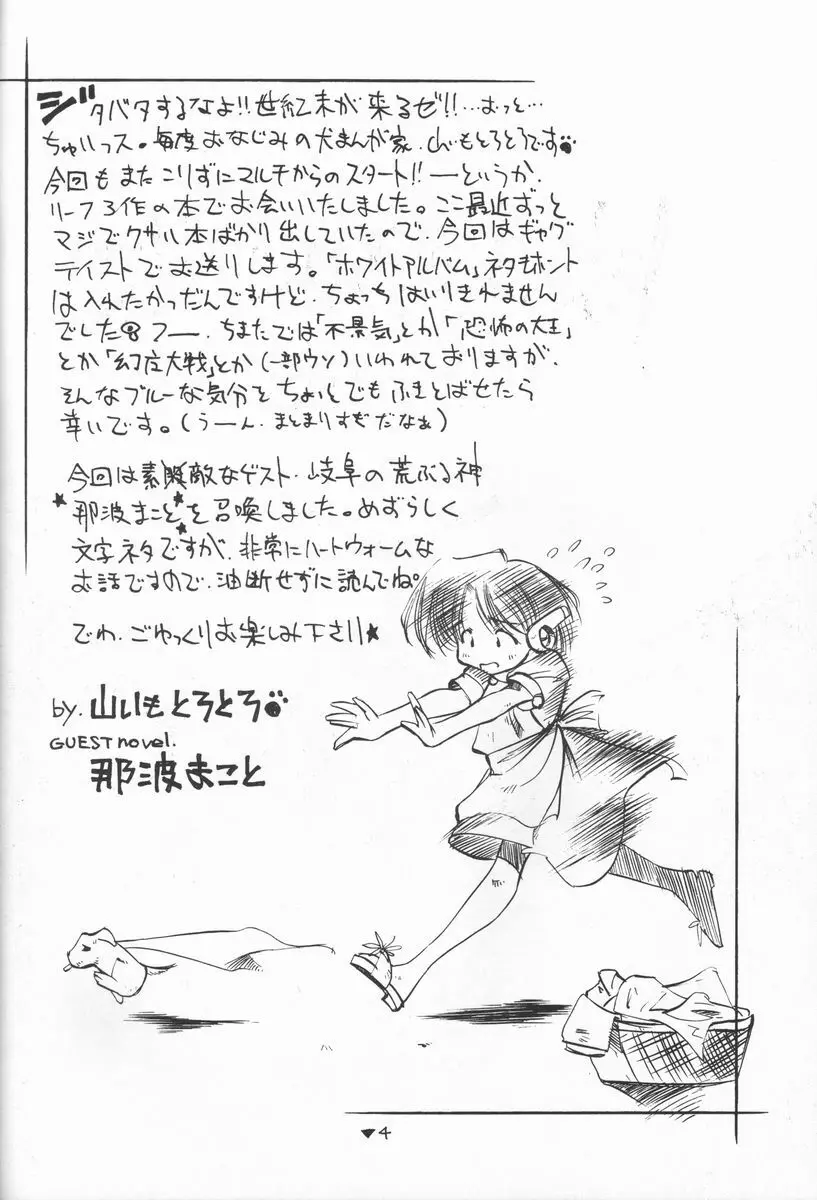 ジタバタするなよ!!世紀末が来るゼ!!…おっと…
ちゅいっス。毎度おなじみの犬まんが家、山いもとろとろです
今回もまたこりずにマルチからのスタート!!ーというか、
リーフ3作の本でお会いいたしました。ここ最近ずっと
マジでクサい本ばかり出していたので、今回はギャグ
テイストでお送りします。「ホワイトアルバム」ネタもホント
は入れたかっだんですけど、ちょっちはいりきれません
でした フー、ちまたでは「不景気」とか「恐怖の大王」
とか「幻応大戦」とか(一部ウソ)いわれておりますが、
そんなブルーな気分をちょいとでもふきとばせたら
幸いです。(うーん、まとまりすぎだなぁ)
今回は素敵なゲスト、岐阜の荒ぶる神
★那波まこと★を召喚しました。めずらしく
文字ネタですが、非常にハートウォームな
お話ですので、油断せずに読んでね。
でわ、ごゆっくりお楽しみ下さい★
by.山いもとろとろ
GUEST novel.
那波まこと
▼4